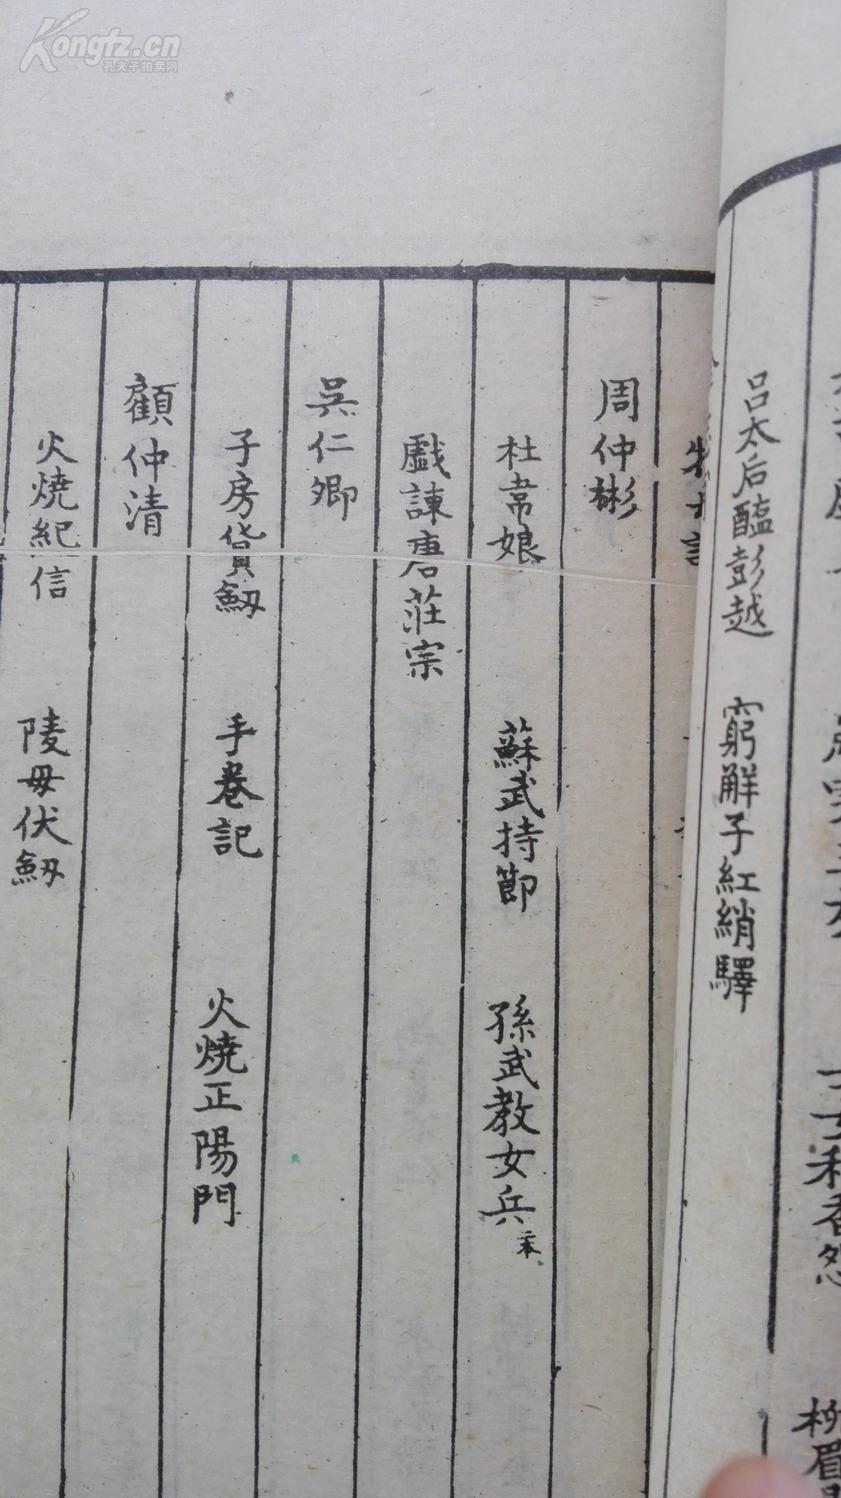 Kongfz.cn
孔夫子拍卖网
呂太后醢彭越 窮解子紅綃驛
周仲彬
杜韋娘 蘇武持節 孫武教女兵二本
戲諫唐莊宗
吳仁卿
子房貨劔 手卷記 火燒正陽門
顧仲清
火燒紀信 陵母伏劔